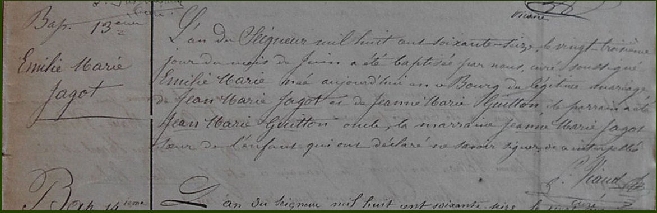 Bap. 13ème
Emilie Marie
Jagot
L'an du Seigneur mil huit cent soixante-seize le vingt troisième
jour du mois de Juin a été baptisée par nous, curé soussigné
Emilie Marie née aujourd'hui en ce Bourg du légitime mariage
de Jean Marie Jagot et de Jeanne Marie Guitton le parrain a été
Jean Marie Guitton oncle, la marraine Jeanne Marie Jagot
sœur de l'enfant qui ont déclaré ne savoir signer de ce interpellés
Bap. 14ème
L'an du Seigneur mil huit cent soixante seize le